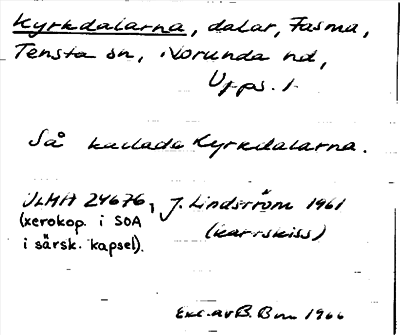 Kyrkdalarna, dalar, Fasma,
Tensta sn, Norunda hd,
Upps. l.
Så kallade Kyrkdalarna.
ULMA 24676, J. Lindström 1961
(xerokop. i SOA (kartskiss)
i särsk. kapsel).
Exc. av B. Bm 1966